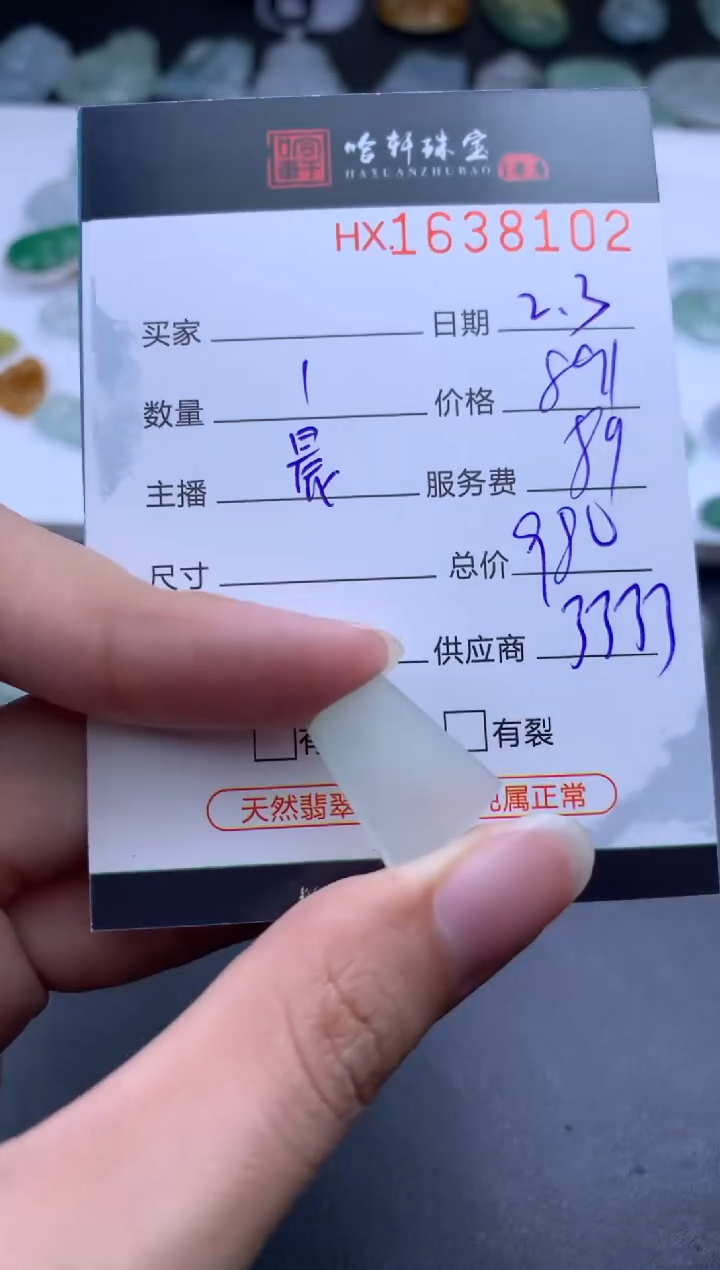 哈轩珠宝
HAXUANZHUBAO
HX.1638102
买家 日期 2.3
数量 1 价格 891
主播 晨 服务费 89
尺寸 总价 980
供应商 3333
有裂
天然翡翠 属正常